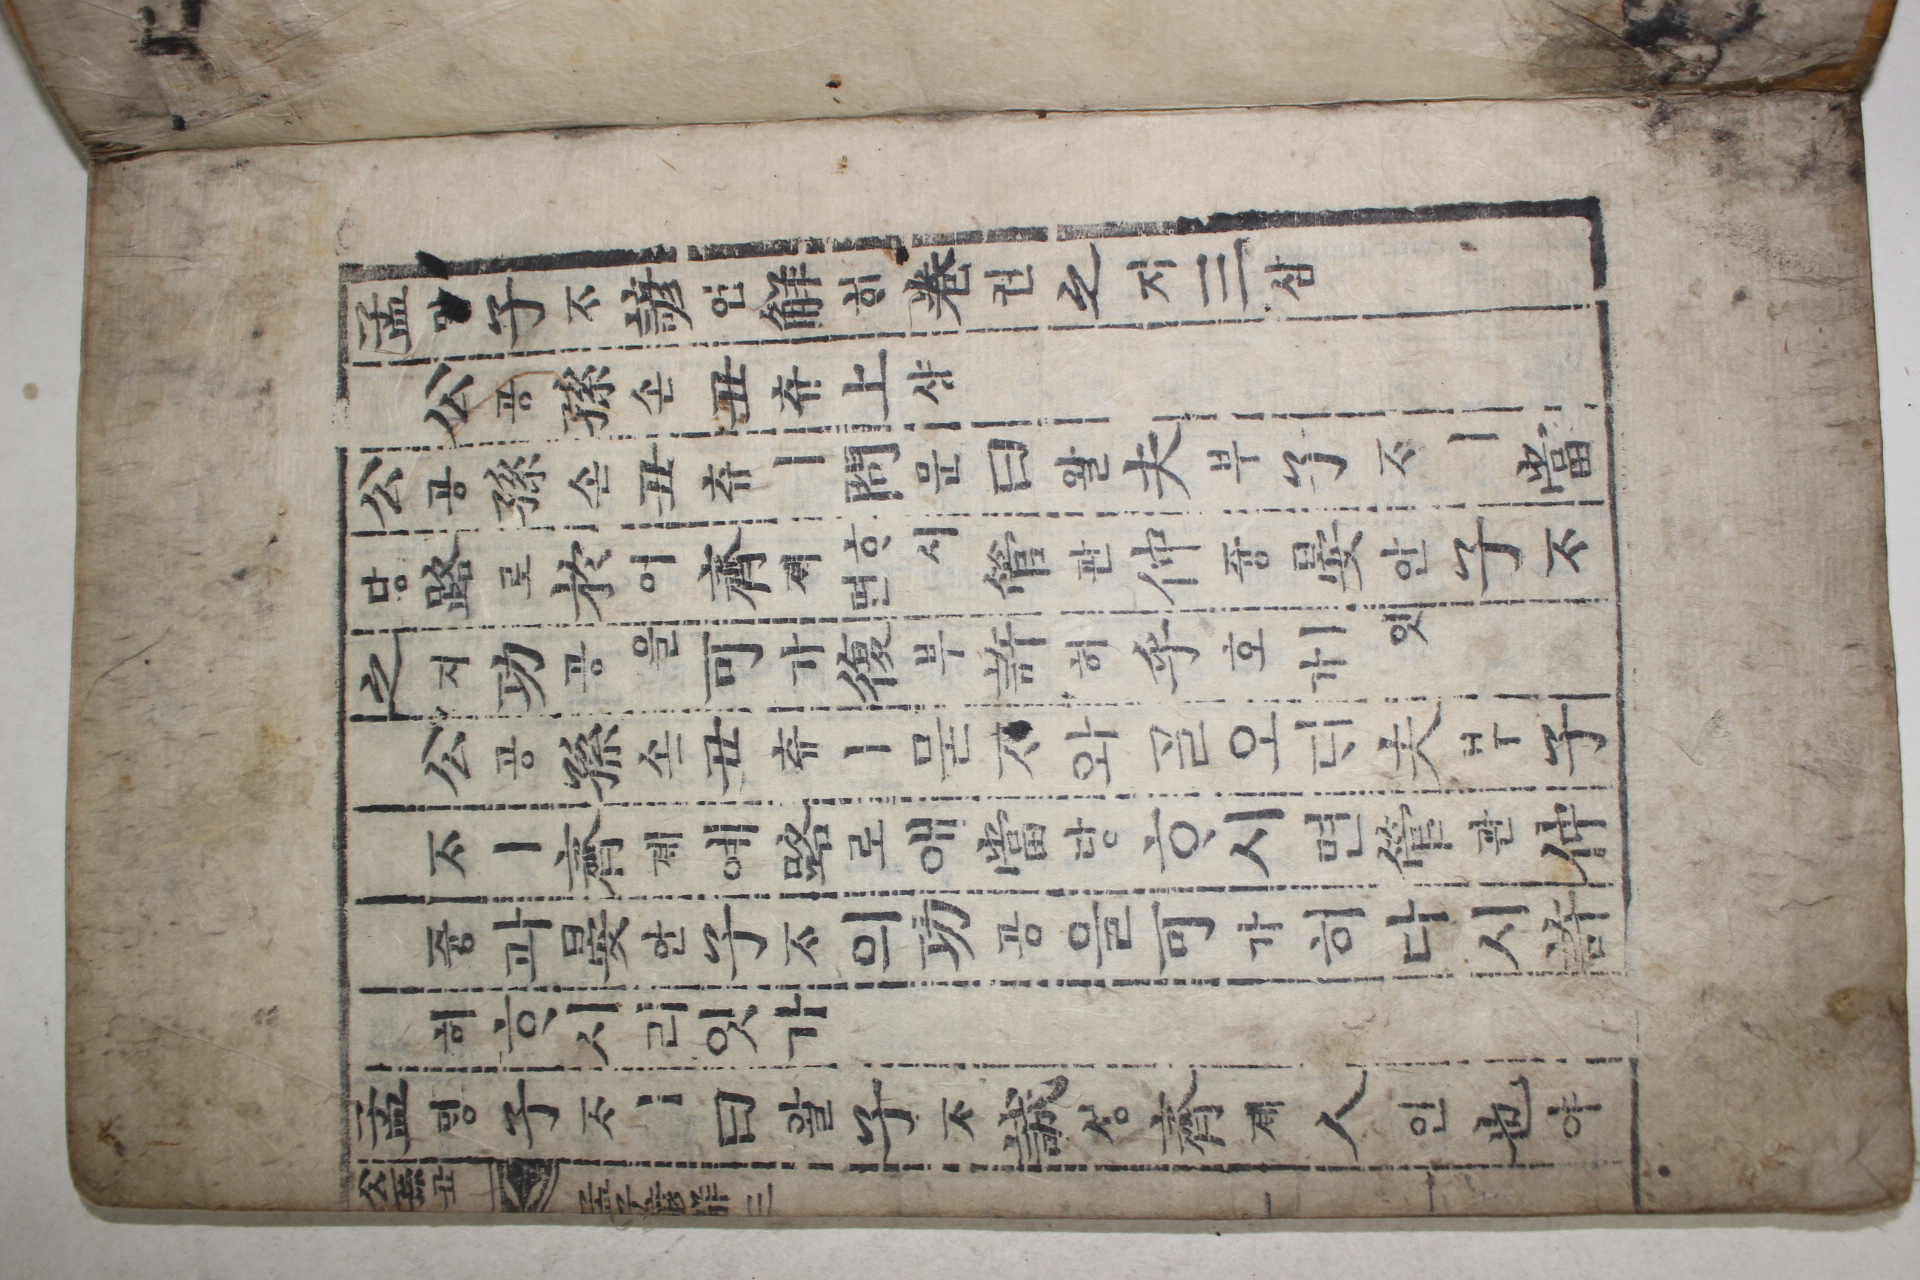 孟ᄆᆡᆼ子ᄌᆞ諺언解ᄒᆡ卷권之지三삼
公공孫손丑츄上샹
公공孫손丑츄ㅣ問문曰왈夫부子ᄌᆞㅣ當
당路로於어齊졔ᄒᆞ시면管관仲듕晏안子ᄌᆞ
之지功공을可가復부許허乎호ㅣ잇가
公공孫손丑츄ㅣ묻ᄌᆞ와ᄀᆞᆯ오ᄃᆡ夫부子
ᄌᆞㅣ齊졔예路로애當당ᄒᆞ시면管관仲
듕과晏안子ᄌᆞ의功공을可가히다시許
허ᄒᆞ시리잇가
孟ᄆᆡᆼ子ᄌᆞㅣ曰왈子ᄌᆞ誠셩齊졔人인也야
孟子諺解三 一